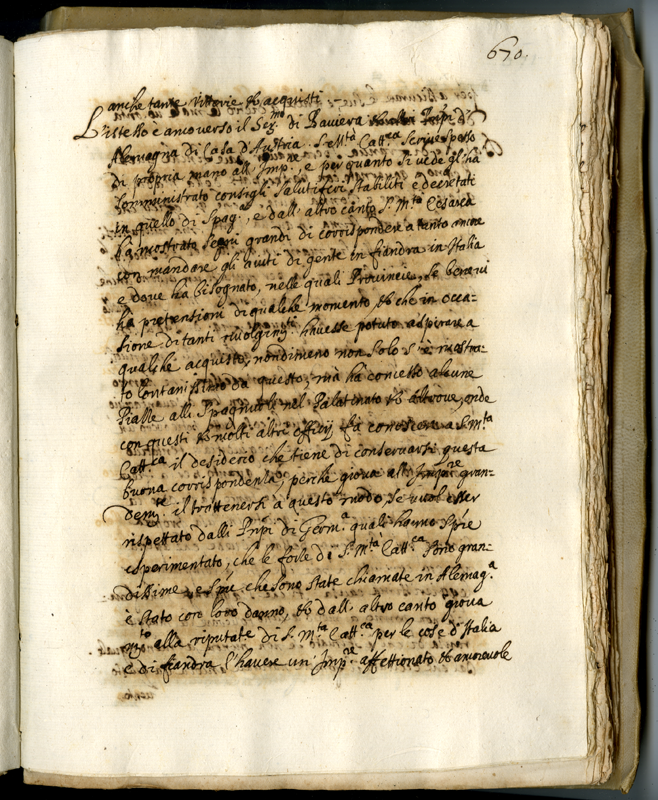 670.
anche tante Vittorie et acquisti
L'istesso camo verso il Ser.mo di Baviera
Alemagna di Casa d'Austria. S. M.tà Catt.ca scrive spesso
di propria mano all'Imp.re e per quanto si vede gl'ha
somministrato consigli salutiferi stabiliti e decretati
in quello di Spag.a, e dall'altro canto S. M.tà Cesarea
ha mostrato segni grandi di corrispondere a tanto amore
con mandare gli aiuti di gente in fiandra in Italia
e dove ha bisognato, nelle quali Provincie, se bene vi
ha pretensioni di qualche momento et che in occa-
sione di tanti rivolgim.ti havesse potuto aspirare a
qualche acquisto, nondimeno non solo s'è mostra-
to lontanissimo da questo, mà ha concesso alcune
Piazze alli Spagnuoli nel Palatinato et altrove, onde
con questi et molti altri officij fà conoscere a S. M.tà
Catt.ca il desiderio che tiene di conservarsi questa
buona corrispondenza, perche giova all'Imp.re gran-
dem.te il trattenersi a questo modo, se vuol esser
rispettato dalli Prnpi di Germ.a quali hanno spre
esperimentato, che le forze di S. M.tà Catt.ca sono gran-
dissime, e spre che sono state chiamate in Alemag.a
è stato con loro danno, et dall'altro canto giova
m.to alla riputat.e di S. M.tà Catt.ca per le cose d'Italia
e di fiandra l'havere un Imp.re affettionato et amorevole